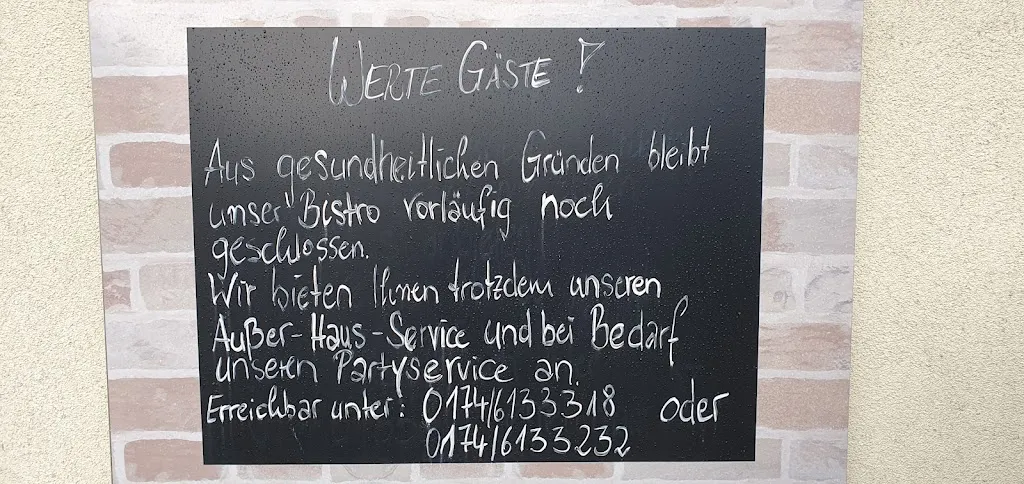 WERTE GÄSTE !
Aus gesundheitlichen Gründen bleibt
unser Bistro vorläufig noch
geschlossen.
Wir bieten Ihnen trotzdem unseren
Außer-Haus-Service und bei Bedarf
unseren Partyservice an.
Erreichbar unter: 0174/6133318 oder
0174/6133232